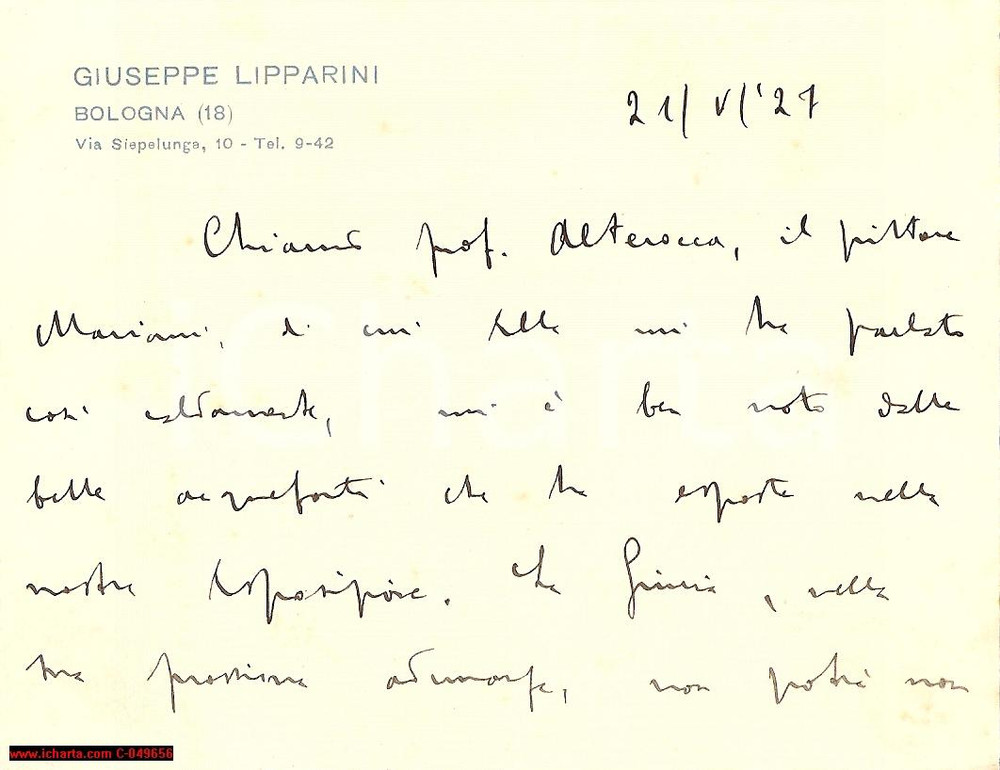 GIUSEPPE LIPPARINI
BOLOGNA (18)
Via Siepelunga, 10 - Tel. 9-42
21/ V/ '27
Chiamo prof. Alterocca, il pittore
Mariani, di cui Ella mi ha parlato
così caldamente, mi è ben noto dalle
belle acqueforti che ha esposte nella
nostra Esposizione. La Giuria, nella
sua prossima adunanza, non potrà non
icharta
www.icharta.com C-049656